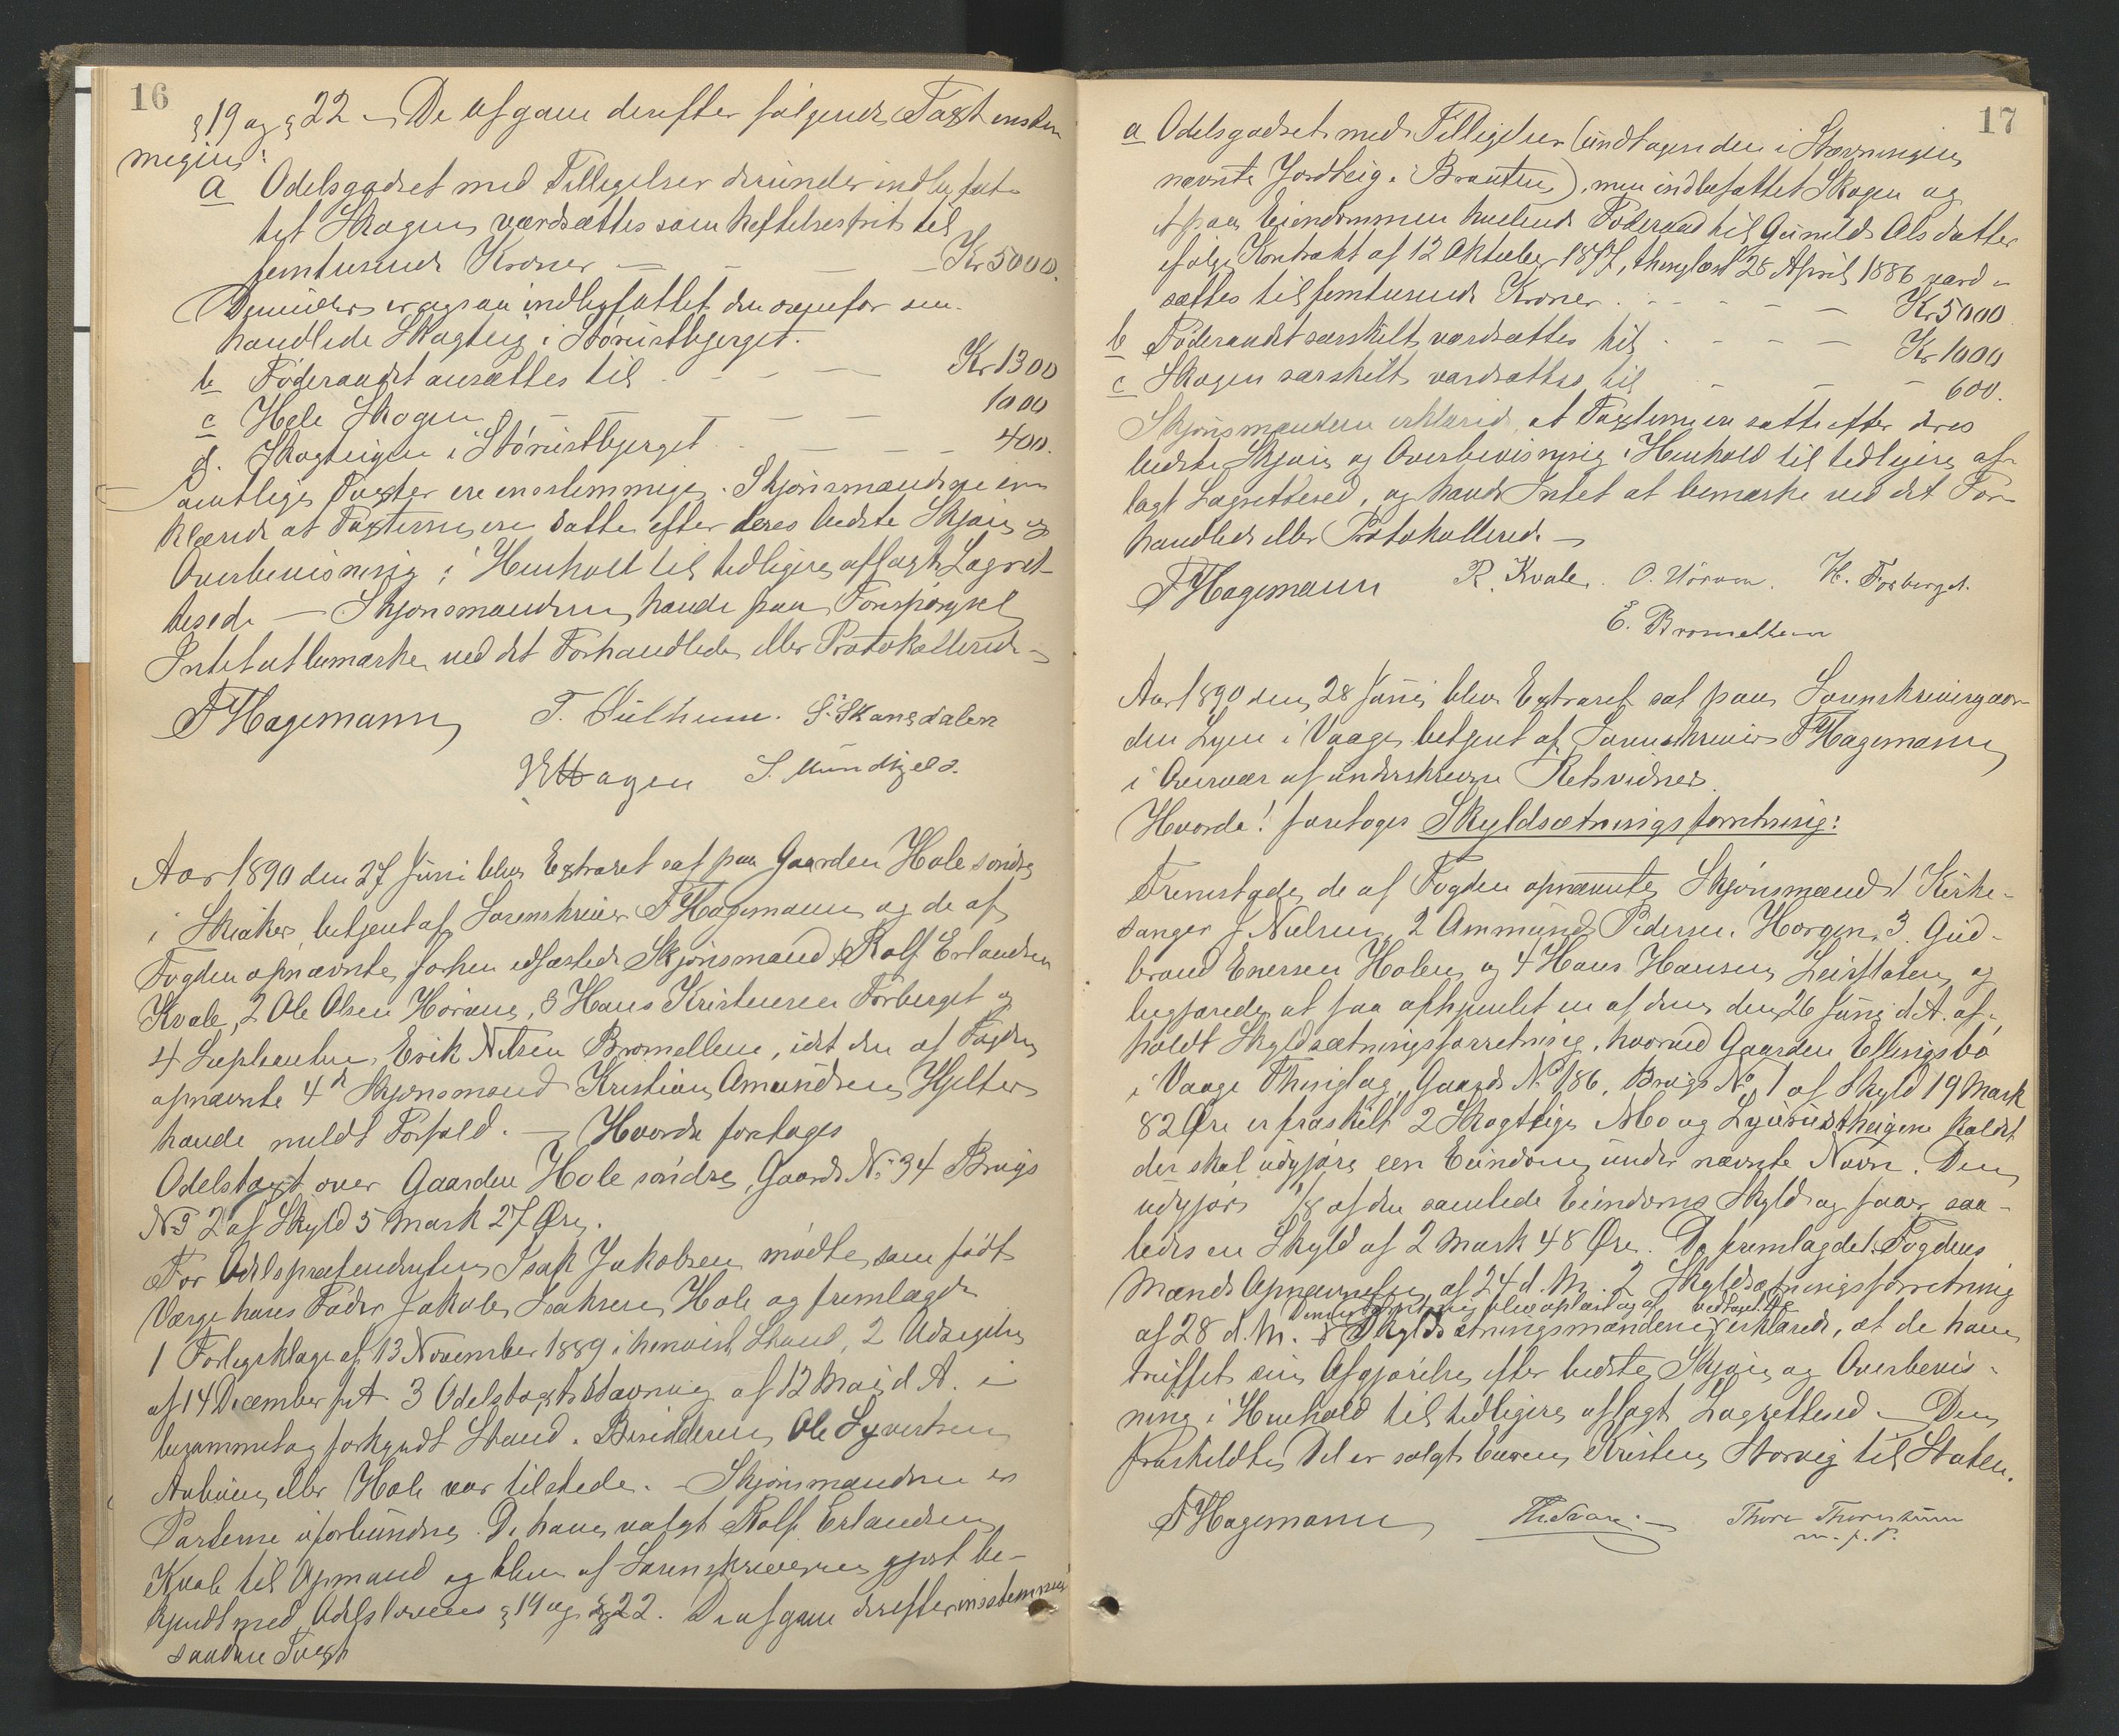 16
§19 og §22 – De afgave derefter følgende Taxt enstem
migen:
a Odelsgodset med Tilligelser derunder indbefat-
tet Skogen værdsættes som heftelsesfrit til
femtusende Kroner – – – Kr 5000.
Derunder er ogsaa indbefattet den ovenfor om-
handlede Skogteig i Störustbjerget.
b Föderaadet ansættes til – – – Kr 1300
c Hele Skogen – – – 1000
d. Skogteigen i Störustbjerget – – – 400.
Samtlige Taxter ere enstemmige. Skjönsmændene er-
klærede at Taxterne ere satte efter deres bedste Skjön og
Overbevisning i Henhold til tidligere aflagt Lagret-
tesed. – Skjönsmændene havde paa Forespörgsel
Intet at bemærke ved det Forhandlede eller Protokollerede –
FHagemann S. Skansdalen
Hagen
Aar 1890 den 27 Juni blev Extraret sat paa Gaarden Hole söndre
i Skiaker betjent af Sorenskriver FHagemann og de af
Fogden opnævnte, forhen edfæstede Skjönsmænd 1 Rolf Erlandsen
Kvale, 2 Ole Olsen , 3 Hans Kristensen Forberget og
4 Supleanten Erik Nilsen Bromellem, idet den af Fogden
opnævnte 4de Skjönsmand Kristian Amundsen Hjelter
havde meldt Forfald. – Hvorda foretoges
Odelstaxt over Gaarden Hole söndre, Gaards No 34 Brugs
No 2 af Skyld 5 Mark 27 Øre.
For Odelsprætendenten Isak Jakobsen mödte som födt
Værge hans Fader Jakob Isaksen Hole og fremlagde
1 Forligsklage af 13 November 1889 i henvist Stand, 2 Udsigelse
af 14 December f. A. 3 Odelstaxtstævning af 12 Mai d. A. i
berammet og forkyndt Stand. Besidderen Ole Syvertsen
eller Hole var tilstede. – Skjönsmændene er
Parterne uforbundne. De have valgt Rolf Erlandsen
Kvale til Opmand og blev af Sorenskriveren gjort be-
kjendt med Odelslovens §19 og §22. De afgave derefter enstemmig
saadan Taxt
17
a Odelsgodset med Tilligelser (undtagen den i Stævningen
nævnte Jordteig i Brauten), men indbefattet Skogen og
et paa Eiendommen hvilende Föderaad til Gunild Olsdatter
ifölge Kontrakt af 12 Oktober 1877, thinglæst 28 April 1886 værd-
sættes til femtusende Kroner – – – Kr 5000
b Föderaadet særskilt værdsættes til – – – Kr 1000
c Skogen særskilt værdsættes til – – – 600.
Skjönsmændene erklærede, at Taxterne ere satte efter deres
bedste Skjön og Overbevisning i Henhold til tidligere af-
lagt Lagrettesed, og havde Intet at bemærke ved det For-
handlede eller Protokollerede. –
FHagemann R. Kvale. H. Forberget.
E. Bromellem
Aar 1890 den 28 Juni blev Extraret sat paa Sorenskrivergaar-
den Lyen i Vaage betjent af Sorenskriver FHagemann
i Overvær af underskrevne Retsvidner.
Hvorda! foretoges Skyldsætningsforretning:
Fremstode de af Fogden opnævnte Skjönsmænd 1 Kirke-
sanger J Nielsen, 2 Ammund Pedersen Horgen, 3. Gud-
brand Enersen Holen og 4 Hans Hansen Leirflaten og
begjærede at faa afhjemlet en af dem den 26 Juni d. A. af-
holdt Skyldsætningsforretning, hvorved Gaarden Ellingsbö
i Vaage Thinglag, Gaards No 186, Brugs No 1 af Skyld 19 Mark
82 Øre er fraskilt 2 Skogteige Mo og kaldet
der skal udgjöre een Eiendom under nævnte Navn. Den
udgjör 1/8 af den samlede Eiendoms Skyld og faaer saa-
ledes en Skyld af 2 Mark 48 Øre. Der fremlagdes 1. Fogdens
Mænds Opnævnelse af 24 d. M. 2 Skyldsætningsforretning
Denne Forretning blev oplæst og af vedtaget. De
af 28 d. M. – Skyldsætningsmændene erklærede, at de have
truffet sin Afgjörelse efter bedste Skjön og Overbevis-
ning i Henhold til tidligere aflagt Lagrettesed. – Den
fraskildte Del er solgt af Kristen Storvig til Staten.
FHagemann Thore
m. f. P.